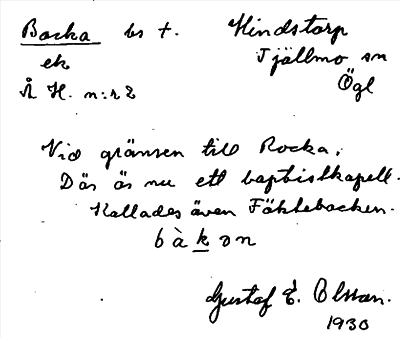 Backa bs t. Hindstorp
ek Tjällmo sn
Å H. n:r 2 Ögl
Vid gränsen till Rocka.
Där är nu ett baptistkapell.
Kallades även Fäktebacken.
b à k ɔ n
Gustaf E. Olsson.
1930